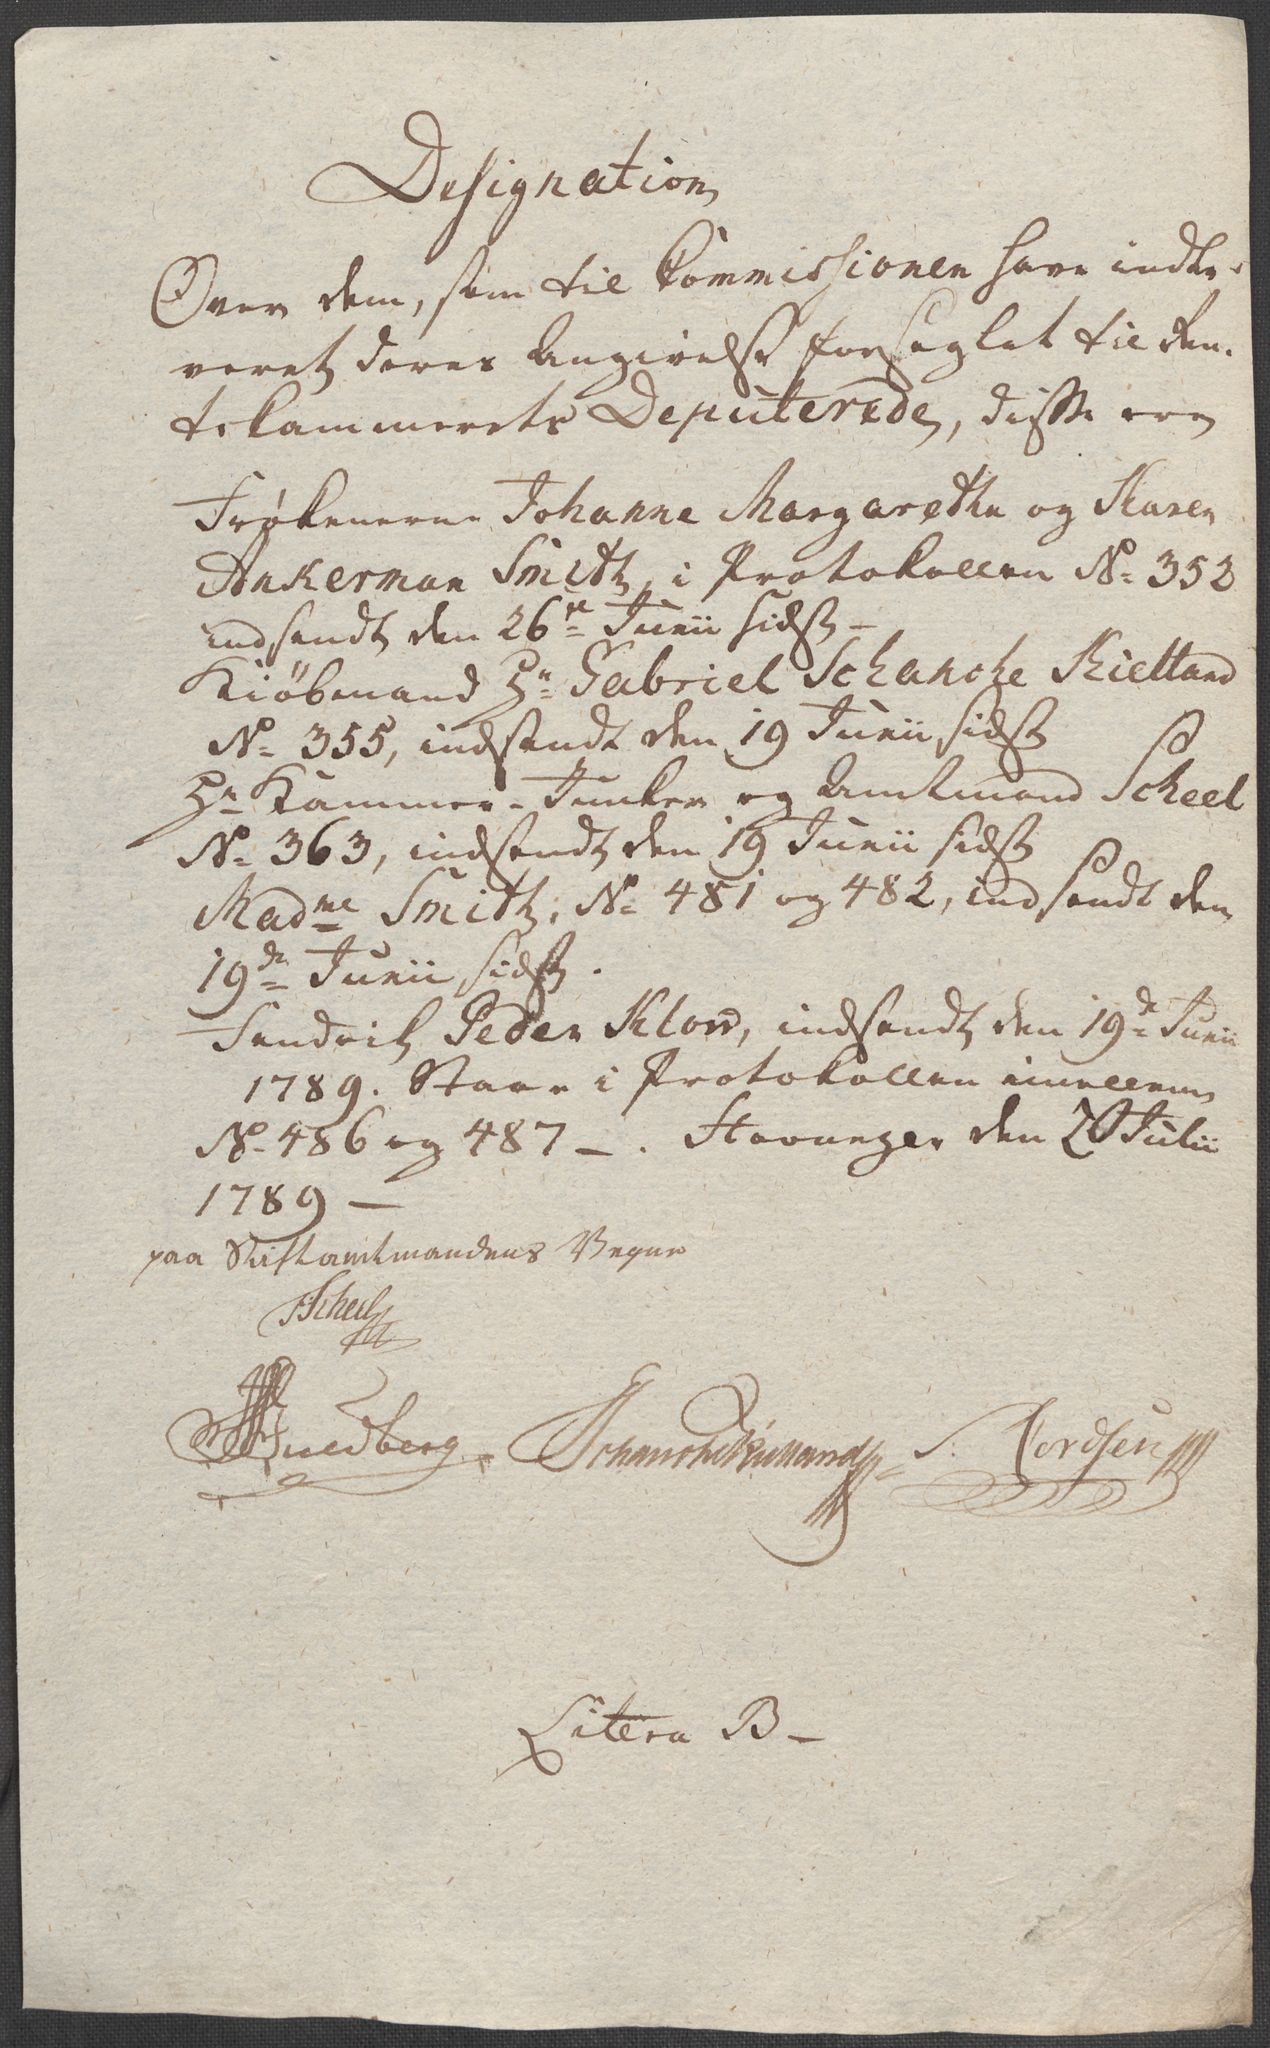 Designation
Over dem, som til Commissionen have indle-
veret deres Angivelse forseglet til Ren-
tekammerets Deputerede, disse ere
Frøkenerne Johanne Margarethe og Karen
Ankerman Smith, i Protokollen No 352
indsendt den 26de Junii sidst –
Kiøbmand Hr Gabriel Schancke Kielland
No 355, indsendt den 19 Junii sidst
Hr Kammer-Junker og Amtmand Scheel
No 363, indsendt den 19 Junii sidst
Madme Smith, No 481 og 482, indsendt den
19de Junii sidst.
Fendrik Peder Klow, indsendt den 19de Junii
1789. Staar i Protokollen imellem
No 486 og 487 – . Stavanger den 20 Julii
1789 –
paa Stiftamtmandens Vegne
Scheel
Buedberg Schancke Kielland
Litera B –